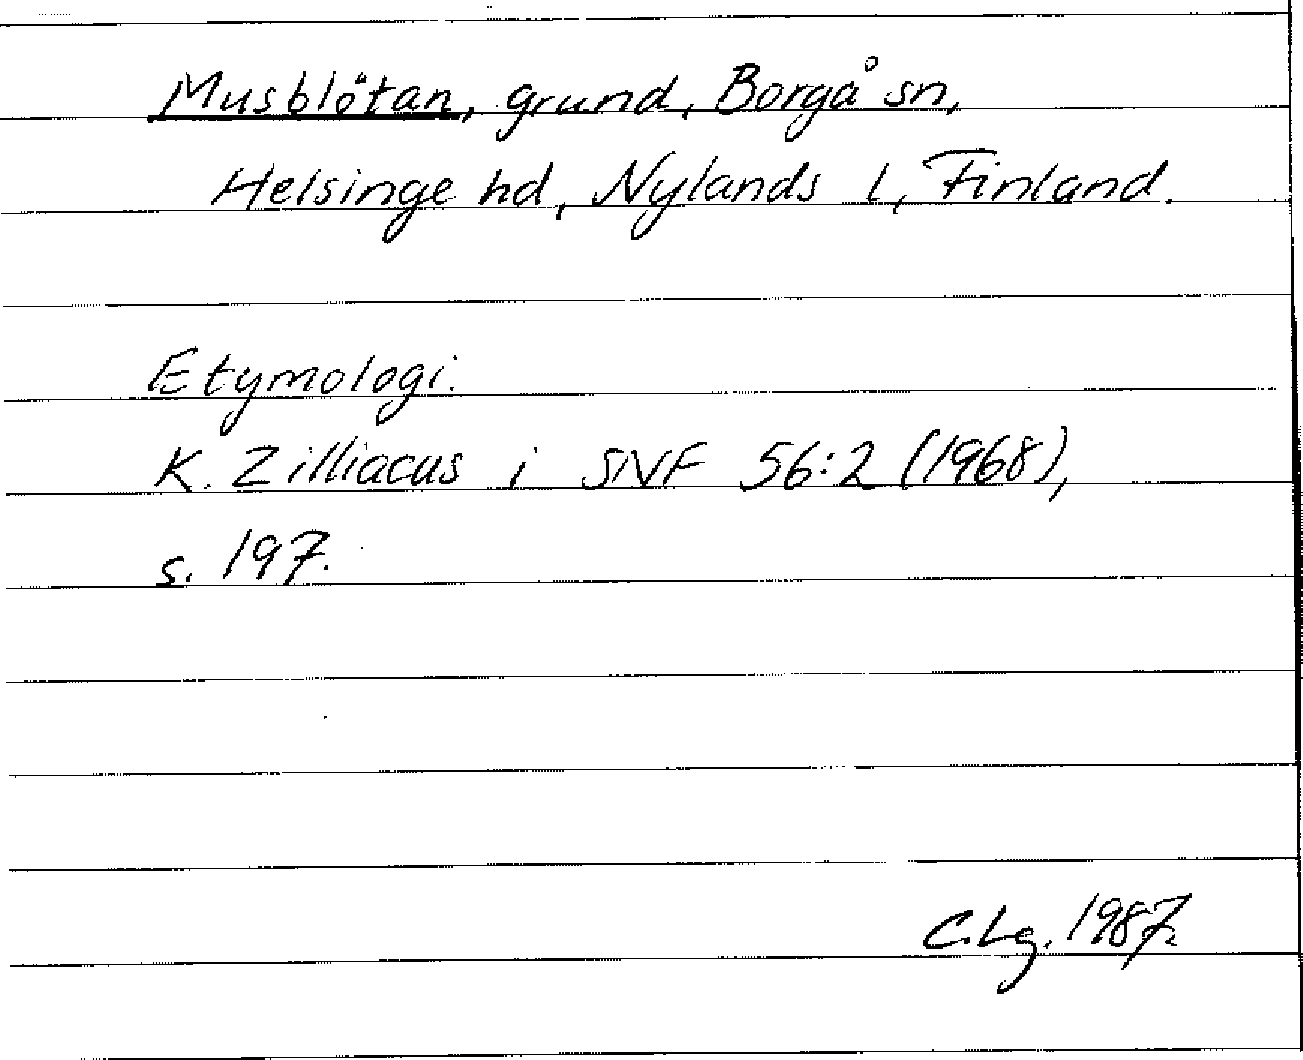 Musblötan, grund, Borgå sn,
Helsinge hd, Nylands l, Finland.
Etymologi.
K. Zilliacus i SNF 56:2 (1968),
s. 197.
C.Lg. 1987.